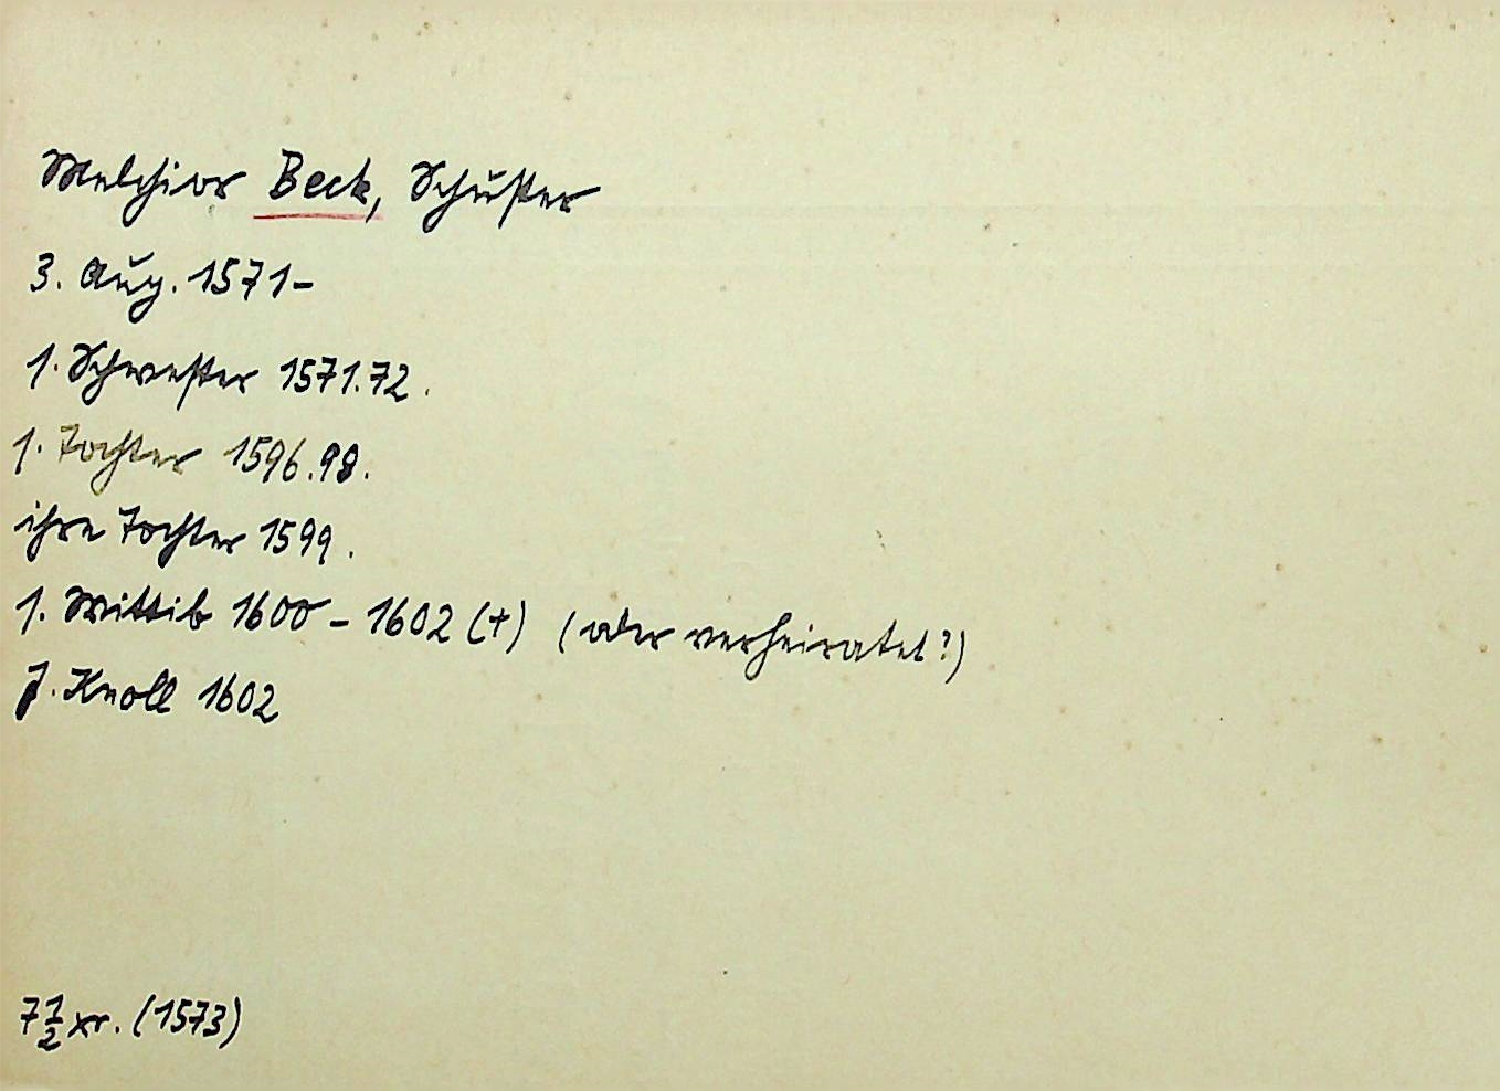 Melchior Beck, Schuster
3. Aug. 1571-
1. Schwester 1571.72.
1. Tochter 1596.98.
ihre Tochter 1599.
1. Wittib 1600 - 1602 (+) (oder verheiratet?)
J. Knoll 1602
7 1/2 xr. (1573)